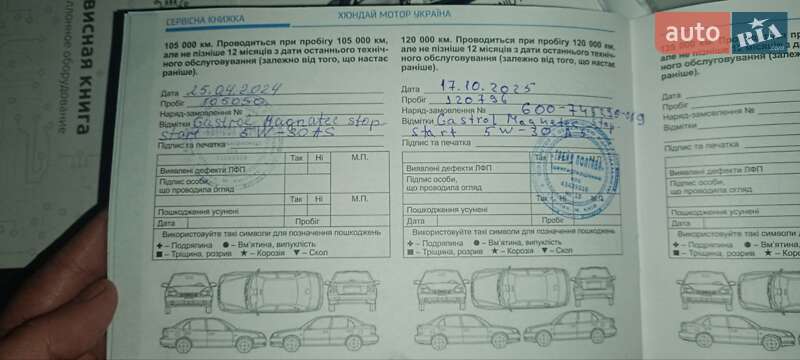 СЕРВІСНА КНИЖКА
ХЮНДАЙ МОТОР УКРАЇНА
auto RIA
105 000 км. Проводиться при пробігу 105 000 км,
але не пізніше 12 місяців з дати останнього техніч-
ного обслуговування (залежно від того, що настає
раніше).
Дата 25.04.2024
Пробіг 105050
Наряд-замовлення №
Відмітки Castrol Magnatec stop
start 5W-30 A5
Підпис та печатка
Так Ні М.П.
Виявлені дефекти ЛФП
Підпис особи,
що проводила огляд
Так Ні М.П.
Пошкодження усунені
Дата Пробіг
Використовуйте такі символи для позначення пошкоджень
+ – Подряпина ● – Вм'ятина, випуклість
■ – Тріщина, розрив ★ – Корозія ▼ – Скол
120 000 км. Проводиться при пробігу 120 000 км,
але не пізніше 12 місяців з дати останнього техніч-
ного обслуговування (залежно від того, що настає
раніше).
Дата 17.10.2025
Пробіг 120796
Наряд-замовлення №
Відмітки Castrol Magnatec stop
start 5W-30 A5
Підпис та печатка
Так Ні М.П.
Виявлені дефекти ЛФП
Підпис особи,
що проводила огляд
Так Ні М.П.
Пошкодження усунені
Дата Пробіг
Використовуйте такі символи для позначення пошкоджень
+ – Подряпина ● – Вм'ятина, випуклість
■ – Тріщина, розрив ★ – Корозія ▼ – Скол
135 000 км. Проводиться
але не пізніше 12
ного обслуговування
раніше).
Дата
Пробіг
Наряд-замовлення
Відмітки
Підпис та печатка
Виявлені дефекти
Підпис особи,
що проводила
Пошкодження
Дата
Використовуйте
+ – Подряпина
■ – Тріщина